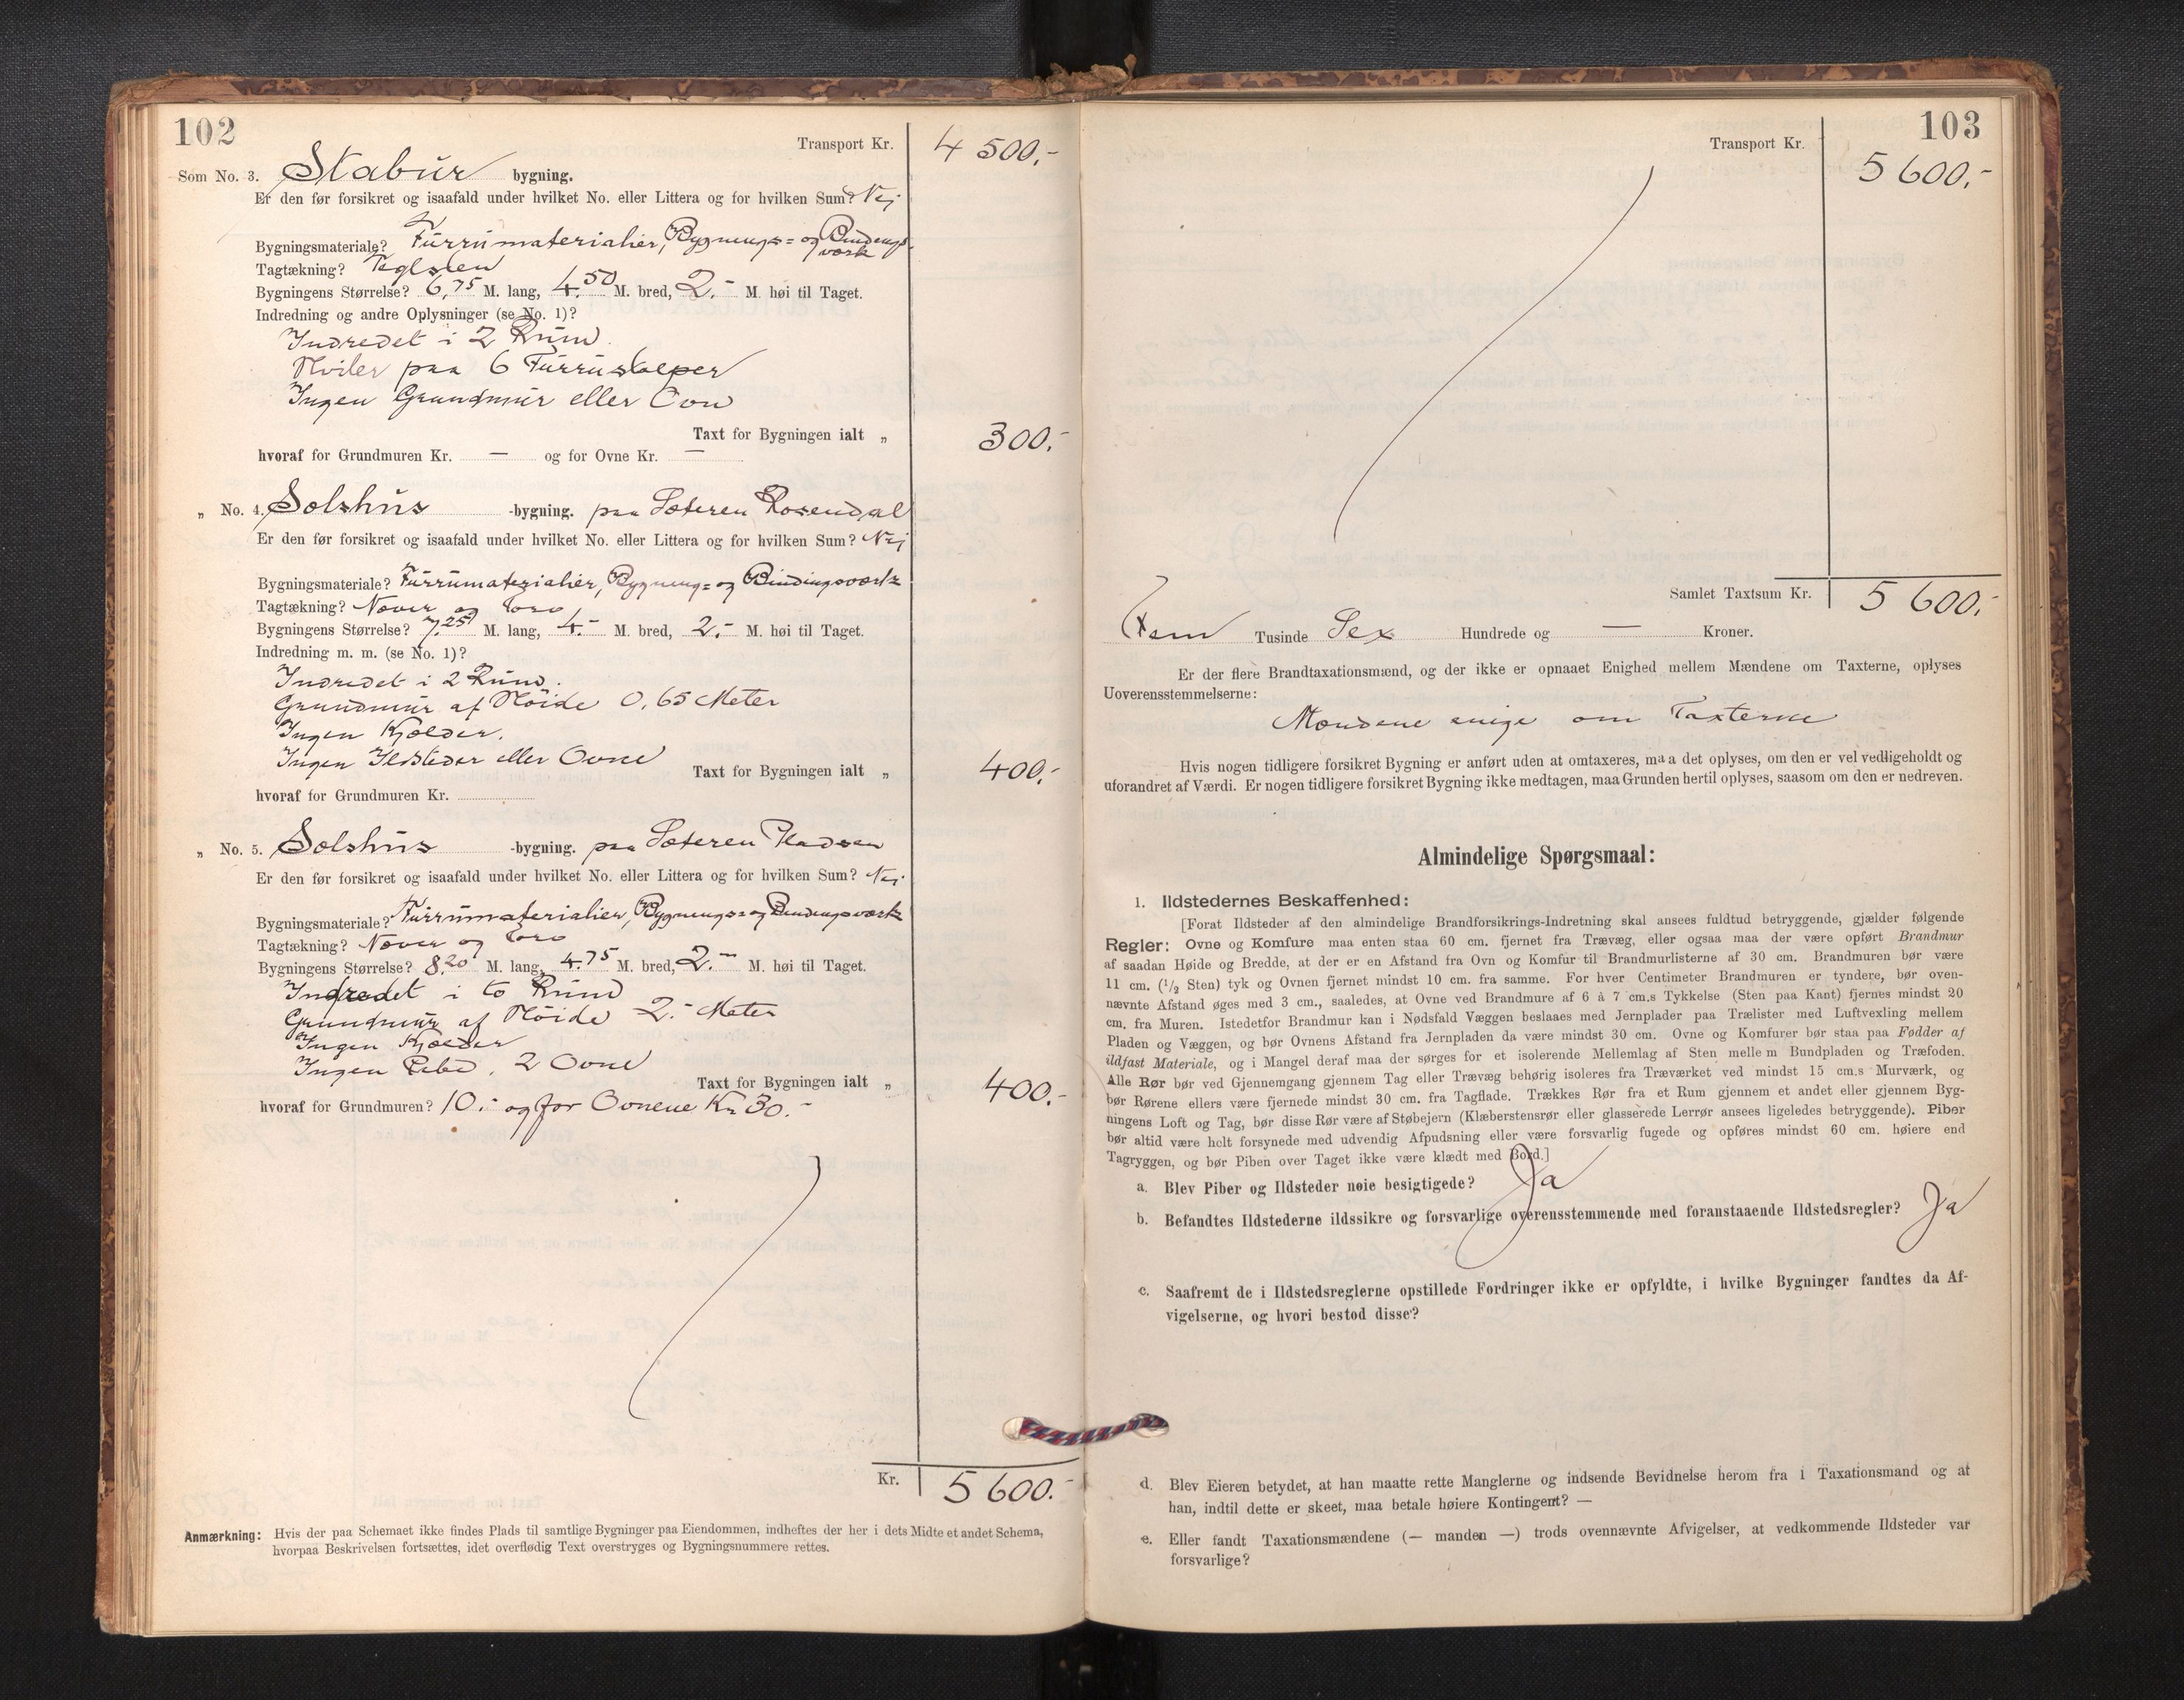 102
Transport Kr. 4 500.-
Som No. 3. Stabur bygning.
Er den før forsikret og isaafald under hvilket No. eller Littera og for hvilken Sum? Nei
Bygningsmateriale? Furrumaterialier, Bygnings- og Bindings
værk
Tagtækning? Teglsten
Bygningens Størrelse? 6,75 M. lang, 4.50 M. bred, 2.- M. høi til Taget.
Indredning og andre Oplysninger (se No. 1)?
Indredet i 2 Rum.
Hviler paa 6 Furrustolper
Ingen Grundmur eller Ovn
Taxt for Bygningen ialt „ 300.-
hvoraf for Grundmuren Kr. — og for Ovne Kr. —
„ No. 4. Sælshus -bygning. paa Sæteren Rosendal
Er den før forsikret og isaafald under hvilket No. eller Littera og for hvilken Sum? Nei
Bygningsmateriale? Furrumaterialier, Bygnings- og Bindingsværk
Tagtækning? Næver og Torv
Bygningens Størrelse? 7.25 M. lang, 4.- M. bred, 2.- M. høi til Taget.
Indredning m. m. (se No. 1)?
Indredet i 2 Rum.
Grundmur af Høide 0,65 Meter
Ingen Kjælder.
Ingen Ildsteder eller Ovne
Taxt for Bygningen ialt „ 400.-
hvoraf for Grundmuren Kr.
„ No. 5. Sælshus -bygning. paa Sæteren Pladsen
Er den før forsikret og isaafald under hvilket No. eller Littera og for hvilken Sum? Nei
Bygningsmateriale? Furrumaterialier, Bygnings- og Bindingsværk
Tagtækning? Næver og Torv
Bygningens Størrelse? 8.20 M. lang, 4.75 M. bred, 2.- M. høi til Taget.
Indredet i to Rum
Grundmur af Høide 2.- Meter
Ingen Kjælder
Ingen Pibe, 2 Ovne
Taxt for Bygningen ialt „ 400.-
hvoraf for Grundmuren? 10.- og for Ovnene Kr 30.-
Kr. 5 600.-
Anmærkning: Hvis der paa Schemaet ikke findes Plads til samtlige Bygninger paa Eiendommen, indheftes der her i dets Midte et andet Schema,
hvorpaa Beskrivelsen fortsættes, idet overflødig Text overstryges og Bygningsnummere rettes.
103
Transport Kr. 5 600.-
Samlet Taxtsum Kr. 5 600.-
Fem Tusinde Sex Hundrede og — Kroner.
Er der flere Brandtaxationsmænd, og der ikke er opnaaet Enighed mellem Mændene om Taxterne, oplyses
Uoverensstemmelserne:
Mændene enige om Taxterne
Hvis nogen tidligere forsikret Bygning er anført uden at omtaxeres, maa det oplyses, om den er vel vedligeholdt og
uforandret af Værdi. Er nogen tidligere forsikret Bygning ikke medtagen, maa Grunden hertil oplyses, saasom om den er nedreven.
Almindelige Spørgsmaal:
1. Ildstedernes Beskaffenhed:
[Forat Ildsteder af den almindelige Brandforsikrings-Indretning skal ansees fuldtud betryggende, gjælder følgende
Regler: Ovne og Komfure maa enten staa 60 cm. fjernet fra Trævæg, eller ogsaa maa der være opført Brandmur
af saadan Høide og Bredde, at der er en Afstand fra Ovn og Komfur til Brandmurlisterne af 30 cm. Brandmuren bør være
11 cm. (1/2 Sten) tyk og Ovnen fjernet mindst 10 cm. fra samme. For hver Centimeter Brandmuren er tyndere, bør oven-
nævnte Afstand øges med 3 cm., saaledes, at Ovne ved Brandmure af 6 à 7 cm.s Tykkelse (Sten paa Kant) fjernes mindst 20
cm. fra Muren. Istedetfor Brandmur kan i Nødsfald Væggen beslaaes med Jernplader paa Trælister med Luftvexling mellem
Pladen og Væggen, og bør Ovnens Afstand fra Jernpladen da være mindst 30 cm. Ovne og Komfurer bør staa paa Fødder af
ildfast Materiale, og i Mangel deraf maa der sørges for et isolerende Mellemlag af Sten mellem Bundpladen og Træfoden.
Alle Rør bør ved Gjennemgang gjennem Tag eller Trævæg behørig isoleres fra Træværket ved mindst 15 cm.s Murværk, og
bør Rørene ellers være fjernede mindst 30 cm. fra Tagflade. Trækkes Rør fra et Rum gjennem et andet eller gjennem Byg-
ningens Loft og Tag, bør disse Rør være af Støbejern (Klæberstensrør eller glasserede Lerrør ansees ligeledes betryggende). Piber
bør altid være helt forsynede med udvendig Afpudsning eller være forsvarlig fugede og opføres mindst 60 cm. høiere end
Tagryggen, og bør Piben over Taget ikke være klædt med Bord.]
a. Blev Piber og Ildsteder nøie besigtigede? Ja
b. Befandtes Ildstederne ildssikre og forsvarlige overensstemmende med foranstaaende Ildstedsregler? Ja
c. Saafremt de i Ildstedsreglerne opstillede Fordringer ikke er opfyldte, i hvilke Bygninger fandtes da Af-
vigelserne, og hvori bestod disse?
d. Blev Eieren betydet, at han maatte rette Manglerne og indsende Bevidnelse herom fra 1 Taxationsmand og at
han, indtil dette er skeet, maa betale høiere Kontingent? —
e. Eller fandt Taxationsmændene (— manden —) trods ovennævnte Afvigelser, at vedkommende Ildsteder var
forsvarlige?